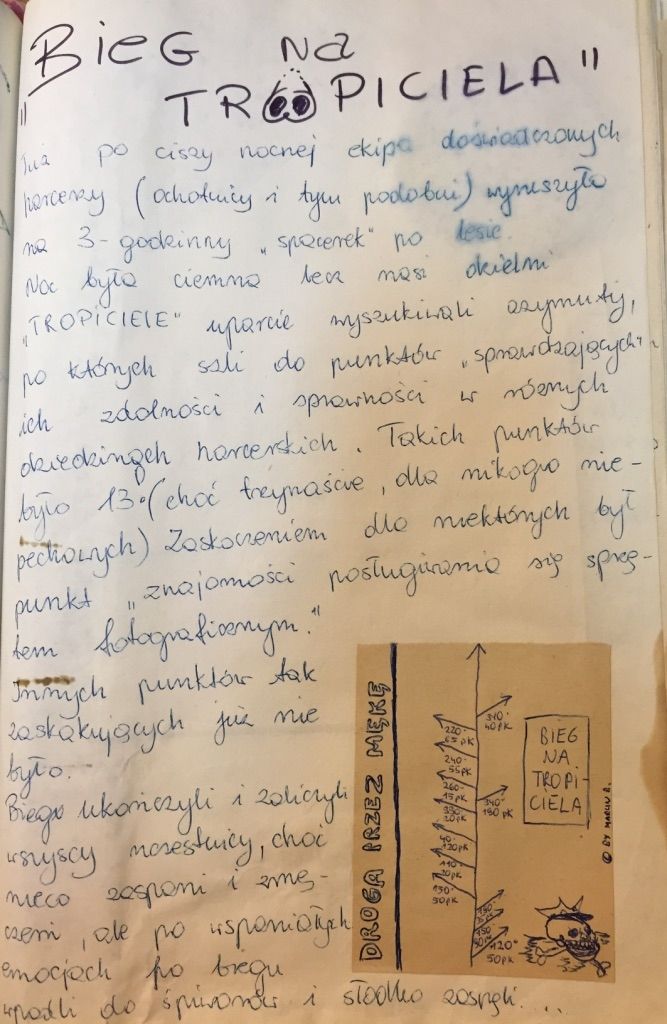 "BIEG NA
TROPICIELA"
Tuż po ciszy nocnej ekipa doświadczonych
harcerzy (ochotnicy i tym podobni) wyruszyła
na 3-godzinny „spacerek" po lesie.
Noc była ciemna lecz nasi dzielni
„TROPICIELE" uparcie wyszukiwali azymuty,
po których szli do punktów „sprawdzających"
ich zdolności i sprawności w różnych
dziedzinach harcerskich. Takich punktów
było 13 (choć trzynaście, dla nikogo nie-
pechowych) Zaskoczeniem dla niektórych był
punkt „znajomości posługiwania się sprzę-
tem fotograficznym."
Innych punktów tak
zaskakujących już nie
było.
Biego ukończyli i zaliczyli
wszyscy uczestnicy, choć
nieco zaspani i zmę-
czeni, ale po wspaniałych
emocjach po biegu
wpadli do śpiworów i słodko zasnęli....
DROGA PRZEZ MĘKĘ
220° 65 PK
240° 55 PK
260° 15 PK
330° 20 PK
40° 120 PK
110° 20 PK
150° 30 PK
310° 40 PK
340° 180 PK
120° 50 PK
BIEG
NA
TROPI-
CIELA
© BY MARCIN R.